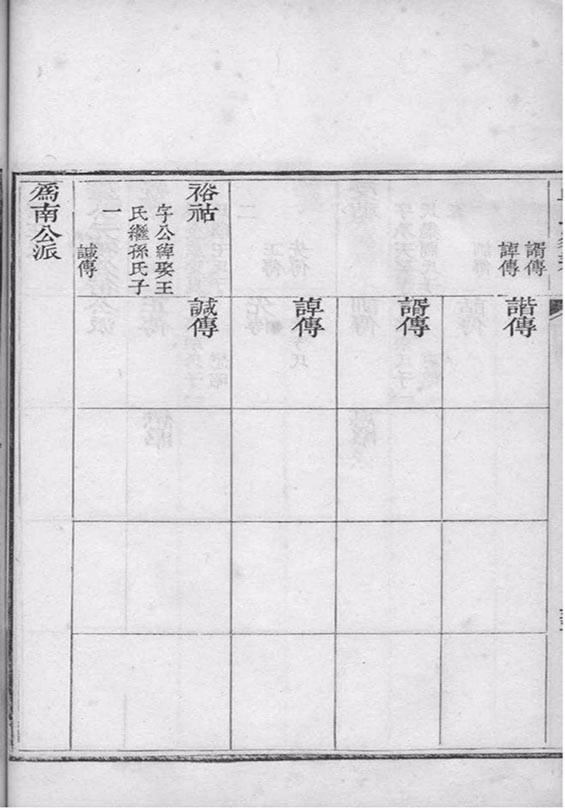 諝傳
諄傳
諧傳
諝傳
諄傳
裕祜
字公緯娶王
氏繼孫氏子
一
諴傳
諴傳
爲南公派